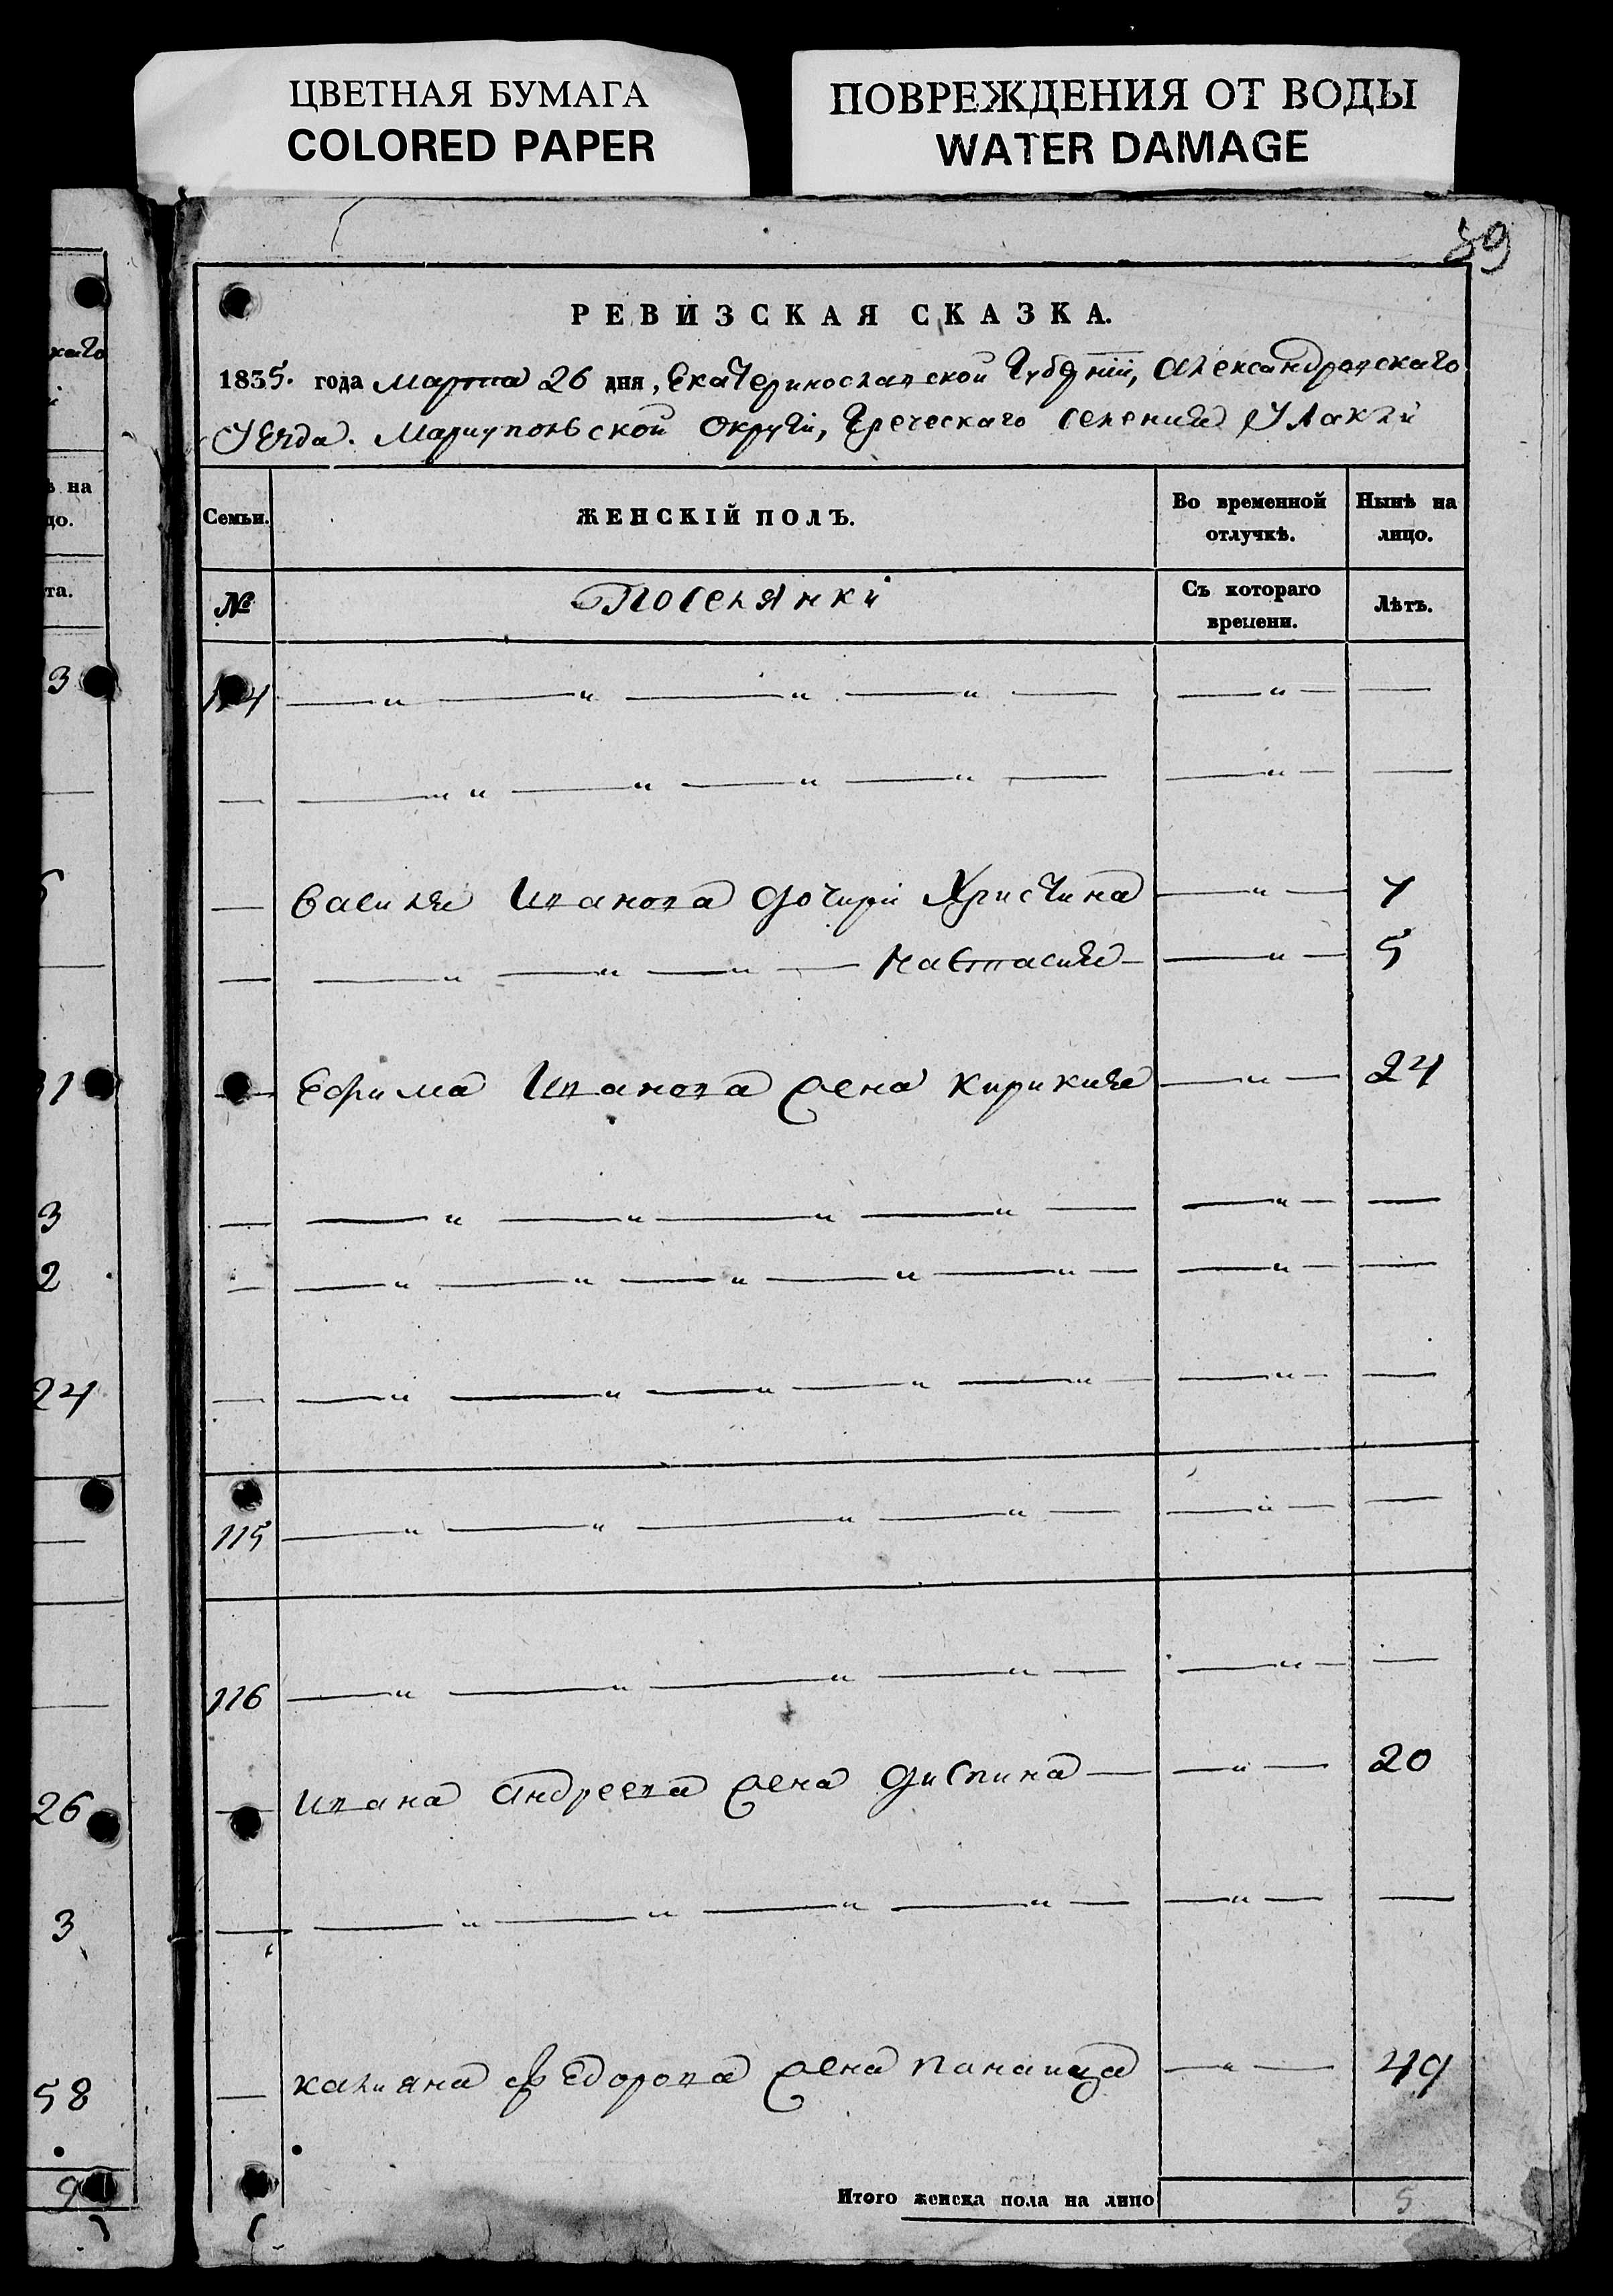 ЦВЕТНАЯ БУМАГА
COLORED PAPER
ПОВРЕЖДЕНИЯ ОТ ВОДЫ
WATER DAMAGE
39
РЕВИЗСКАЯ СКАЗКА.
1835. года Марта 26 дня, Екатеринославской Губернии, Александровскаго
Уезда. Мариупольской Округи, Греческаго Селения Улаклы
Семьи. ЖЕНСКІЙ ПОЛЪ. Во временной отлучкѣ. Нынѣ на лицо.
№ Поселянки Съ котораго времени. Лѣтъ.
114 — " — " — " — " — — " — —
— — " " — " — " — " — — " — —
— Василия Иванова дочири Христина — " — 7
— — " — " — " — Настасия — — " — 5
— Ефима Иванова жена Кирикия — " — 24
— — " — " — " — " — — " — —
— — " — " — " — " — " — — " — —
— — " — " — " — " — " — — " — —
115 — " — " — " — " — — " — —
116 — " — " — " — " — — " — —
— Ивана Андреева жена Диспина — — " — 20
— — " — " — " — " — — " — —
— Калияна Федорова жена Панаица — " — 49
Итого женска пола на лицо 5
каго
ь на
до.
та.
3
3
2
24
26
3
58
9